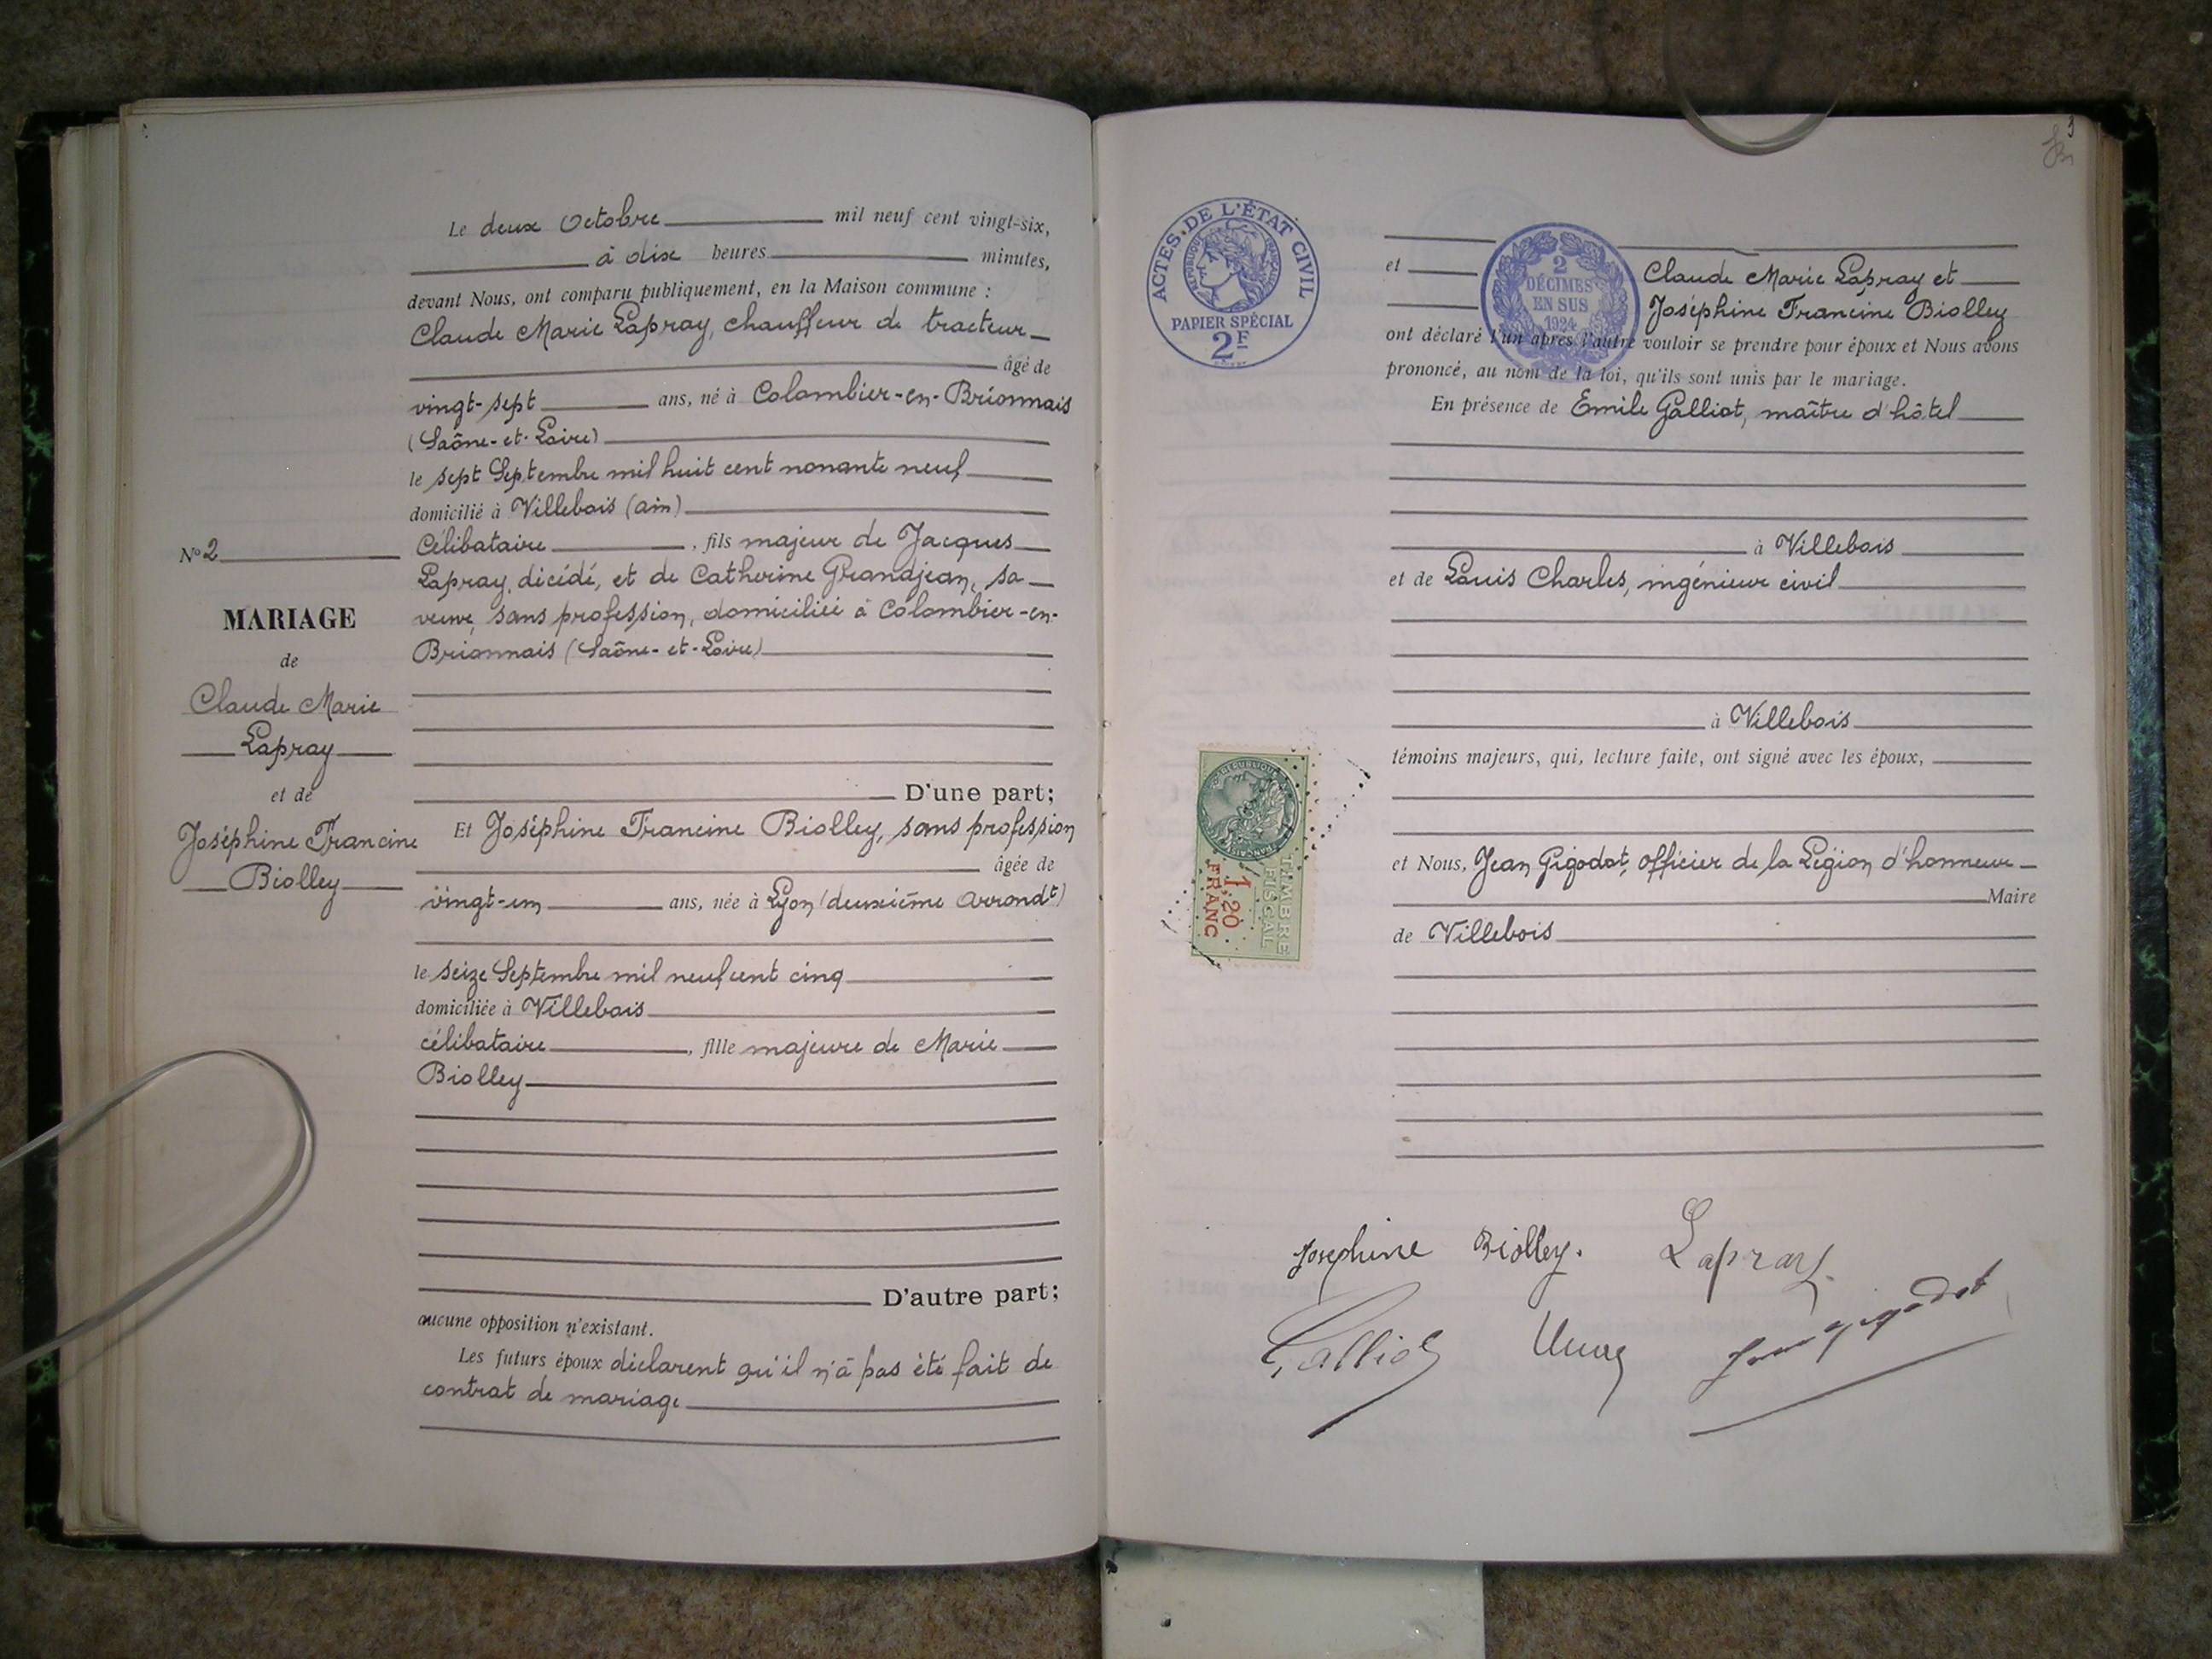 Le deux Octobre mil neuf cent vingt-six,
à dix heures minutes,
devant Nous, ont comparu publiquement, en la Maison commune :
Claude Marie Lapray, chauffeur de tracteur
âgé de
vingt-sept ans, né à Colombier-en-Brionnais
(Saône-et-Loire)
le sept Septembre mil huit cent nonante neuf
domicilié à Villebois (ain)
Célibataire, fils majeur de Jacques
Lapray, décédé, et de Catherine Grandjean, sa
veuve, sans profession, domiciliée à Colombier-en-
Brionnais (Saône-et-Loire)
D'une part;
Et Joséphine Francine Biolley, sans profession
âgée de
vingt-un ans, née à Lyon (deuxième Arrondt)
le seize Septembre mil neuf cent cinq
domiciliée à Villebois
célibataire, fille majeure de Marie
Biolley
D'autre part;
aucune opposition n'existant.
Les futurs époux déclarent qu'il n'a pas été fait de
contrat de mariage
N° 2
MARIAGE
de
Claude Marie
Lapray
et de
Joséphine Francine
Biolley
3
ACTES DE L'ÉTAT CIVIL
RÉPUBLIQUE FRANÇAISE
PAPIER SPÉCIAL
2F
2
DÉCIMES
EN SUS
1924
et Claude Marie Lapray et
Joséphine Francine Biolley
ont déclaré l'un après l'autre vouloir se prendre pour époux et Nous avons
prononcé, au nom de la loi, qu'ils sont unis par le mariage.
En présence de Emile Galliot, maître d'hôtel
à Villebois
et de Louis Charles, ingénieur civil
à Villebois
témoins majeurs, qui, lecture faite, ont signé avec les époux,
et Nous, Jean Gigodot, officier de la Légion d'honneur
Maire
de Villebois
RÉPUBLIQUE FRANÇAISE
TIMBRE
FISCAL
1,20
FRANC
Josephine Biolley. Lapray
Galliot
Jean Gigodot